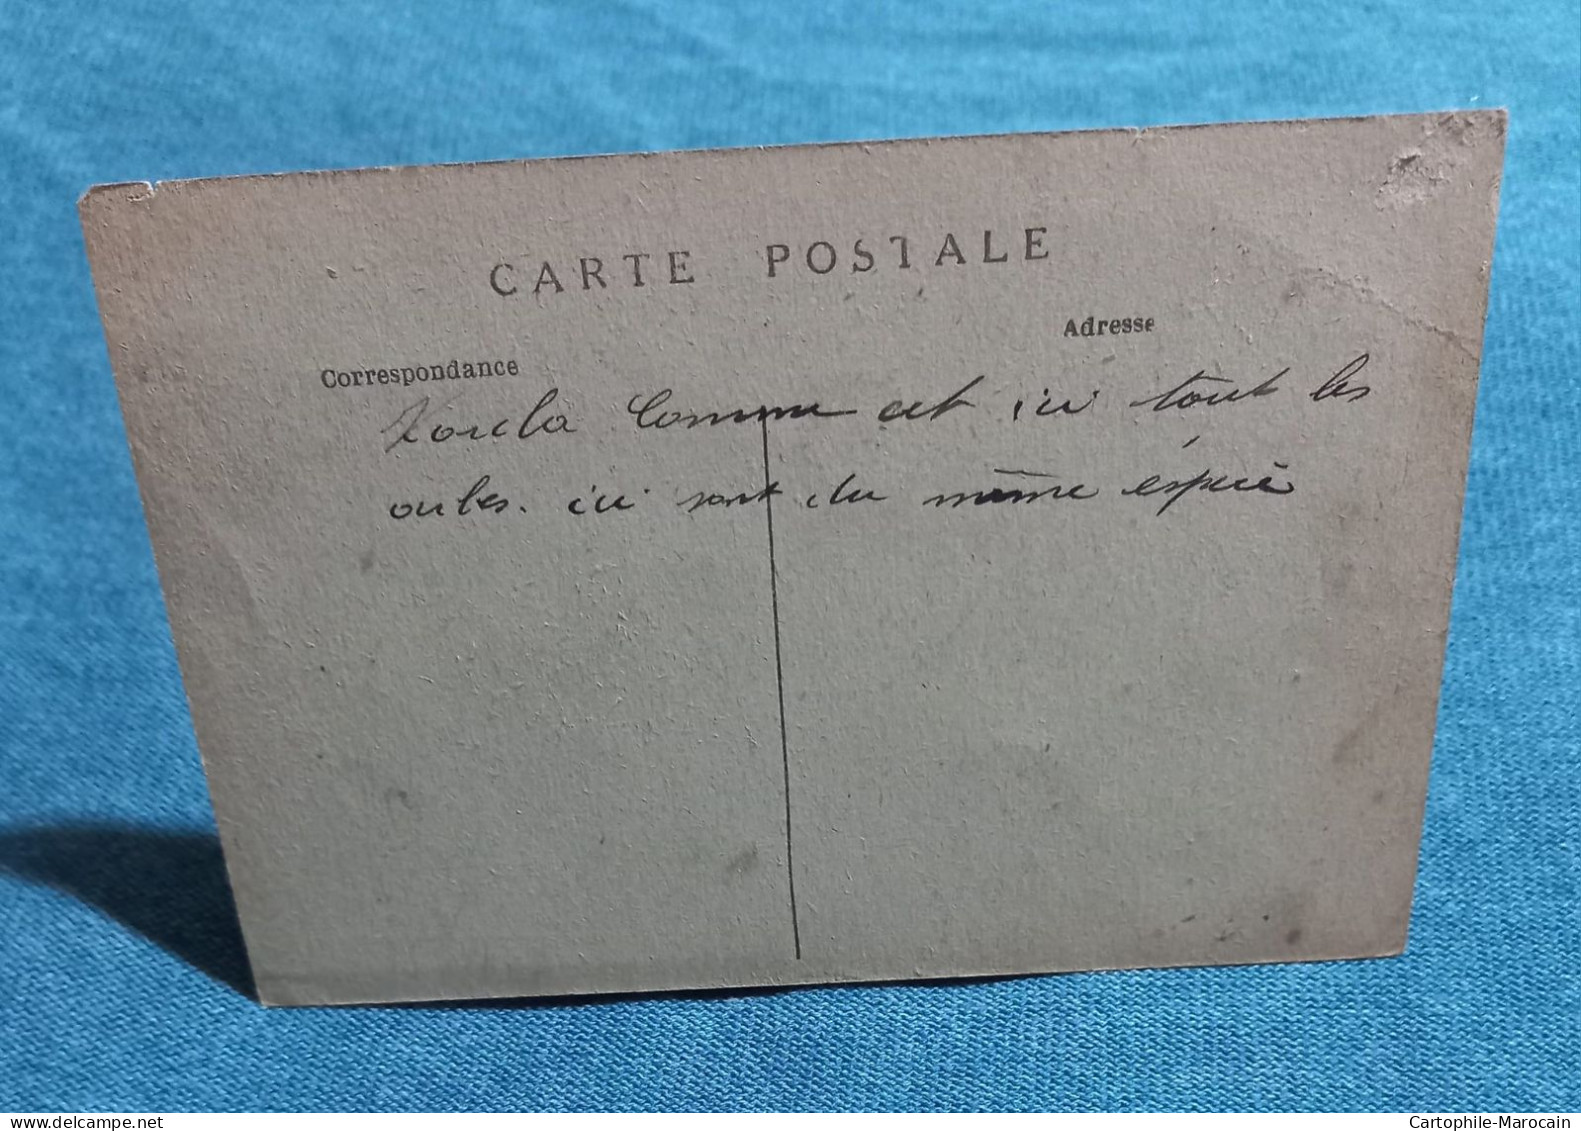 CARTE POSTALE
Correspondance
Adresse
Comme est ici tout les
oules. ici sont du même éspecè
www.delcampe.net
Cartophile-Marocain